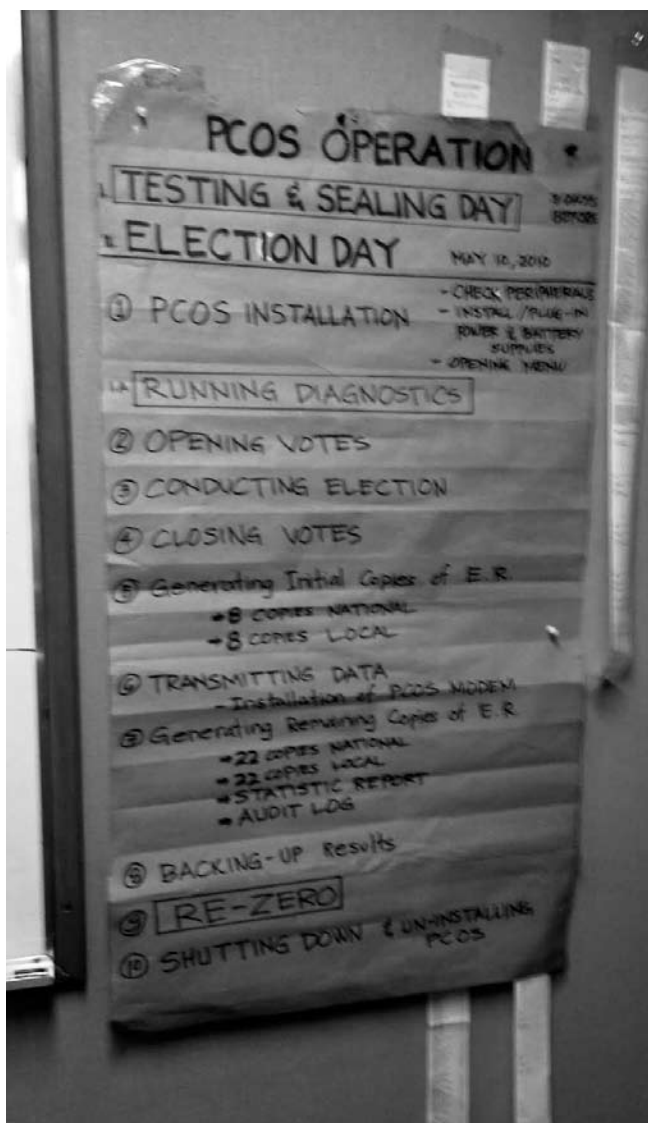 PCOS OPERATION
1. TESTING & SEALING DAY 3 DAYS
BEFORE
2. ELECTION DAY MAY 10, 2010
① PCOS INSTALLATION - CHECK PERIPHERALS
- INSTALL / PLUG-IN
POWER & BATTERY
SUPPLIES
- OPENING MENU
1.A RUNNING DIAGNOSTICS
② OPENING VOTES
③ CONDUCTING ELECTION
④ CLOSING VOTES
⑤ Generating Initial Copies of E.R.
→ 8 COPIES NATIONAL
→ 8 COPIES LOCAL
⑥ TRANSMITTING DATA
- Installation of PCOS MODEM
⑦ Generating Remaining Copies of E.R.
→ 22 COPIES NATIONAL
→ 22 COPIES LOCAL
→ STATISTIC REPORT
→ AUDIT LOG
⑧ BACKING-UP Results
⑨ RE-ZERO
⑩ SHUTTING DOWN & UN-INSTALLING
PCOS